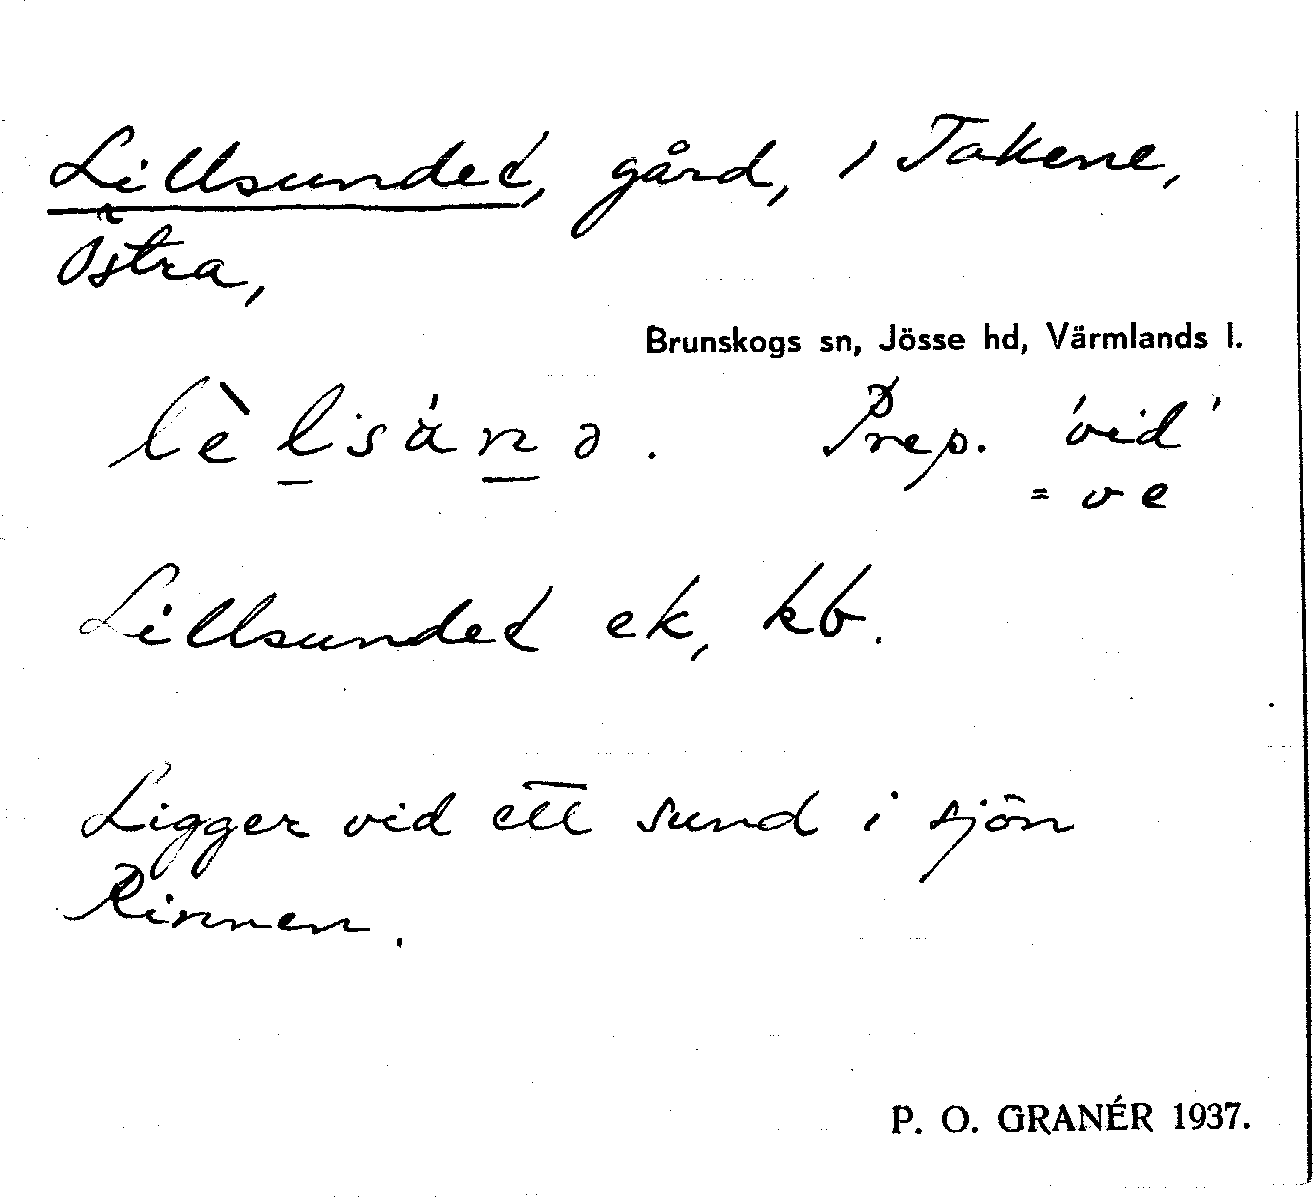 Lillsundet, gård, i Takene,
Östra,
Brunskogs sn, Jösse hd, Värmlands l.
lèl̲sáṉə. Prep. 'vid'
= ve
Lillsundet ek, kb.
Ligger vid ett sund i sjön
Rinnen.
P. O. GRANÉR 1937.